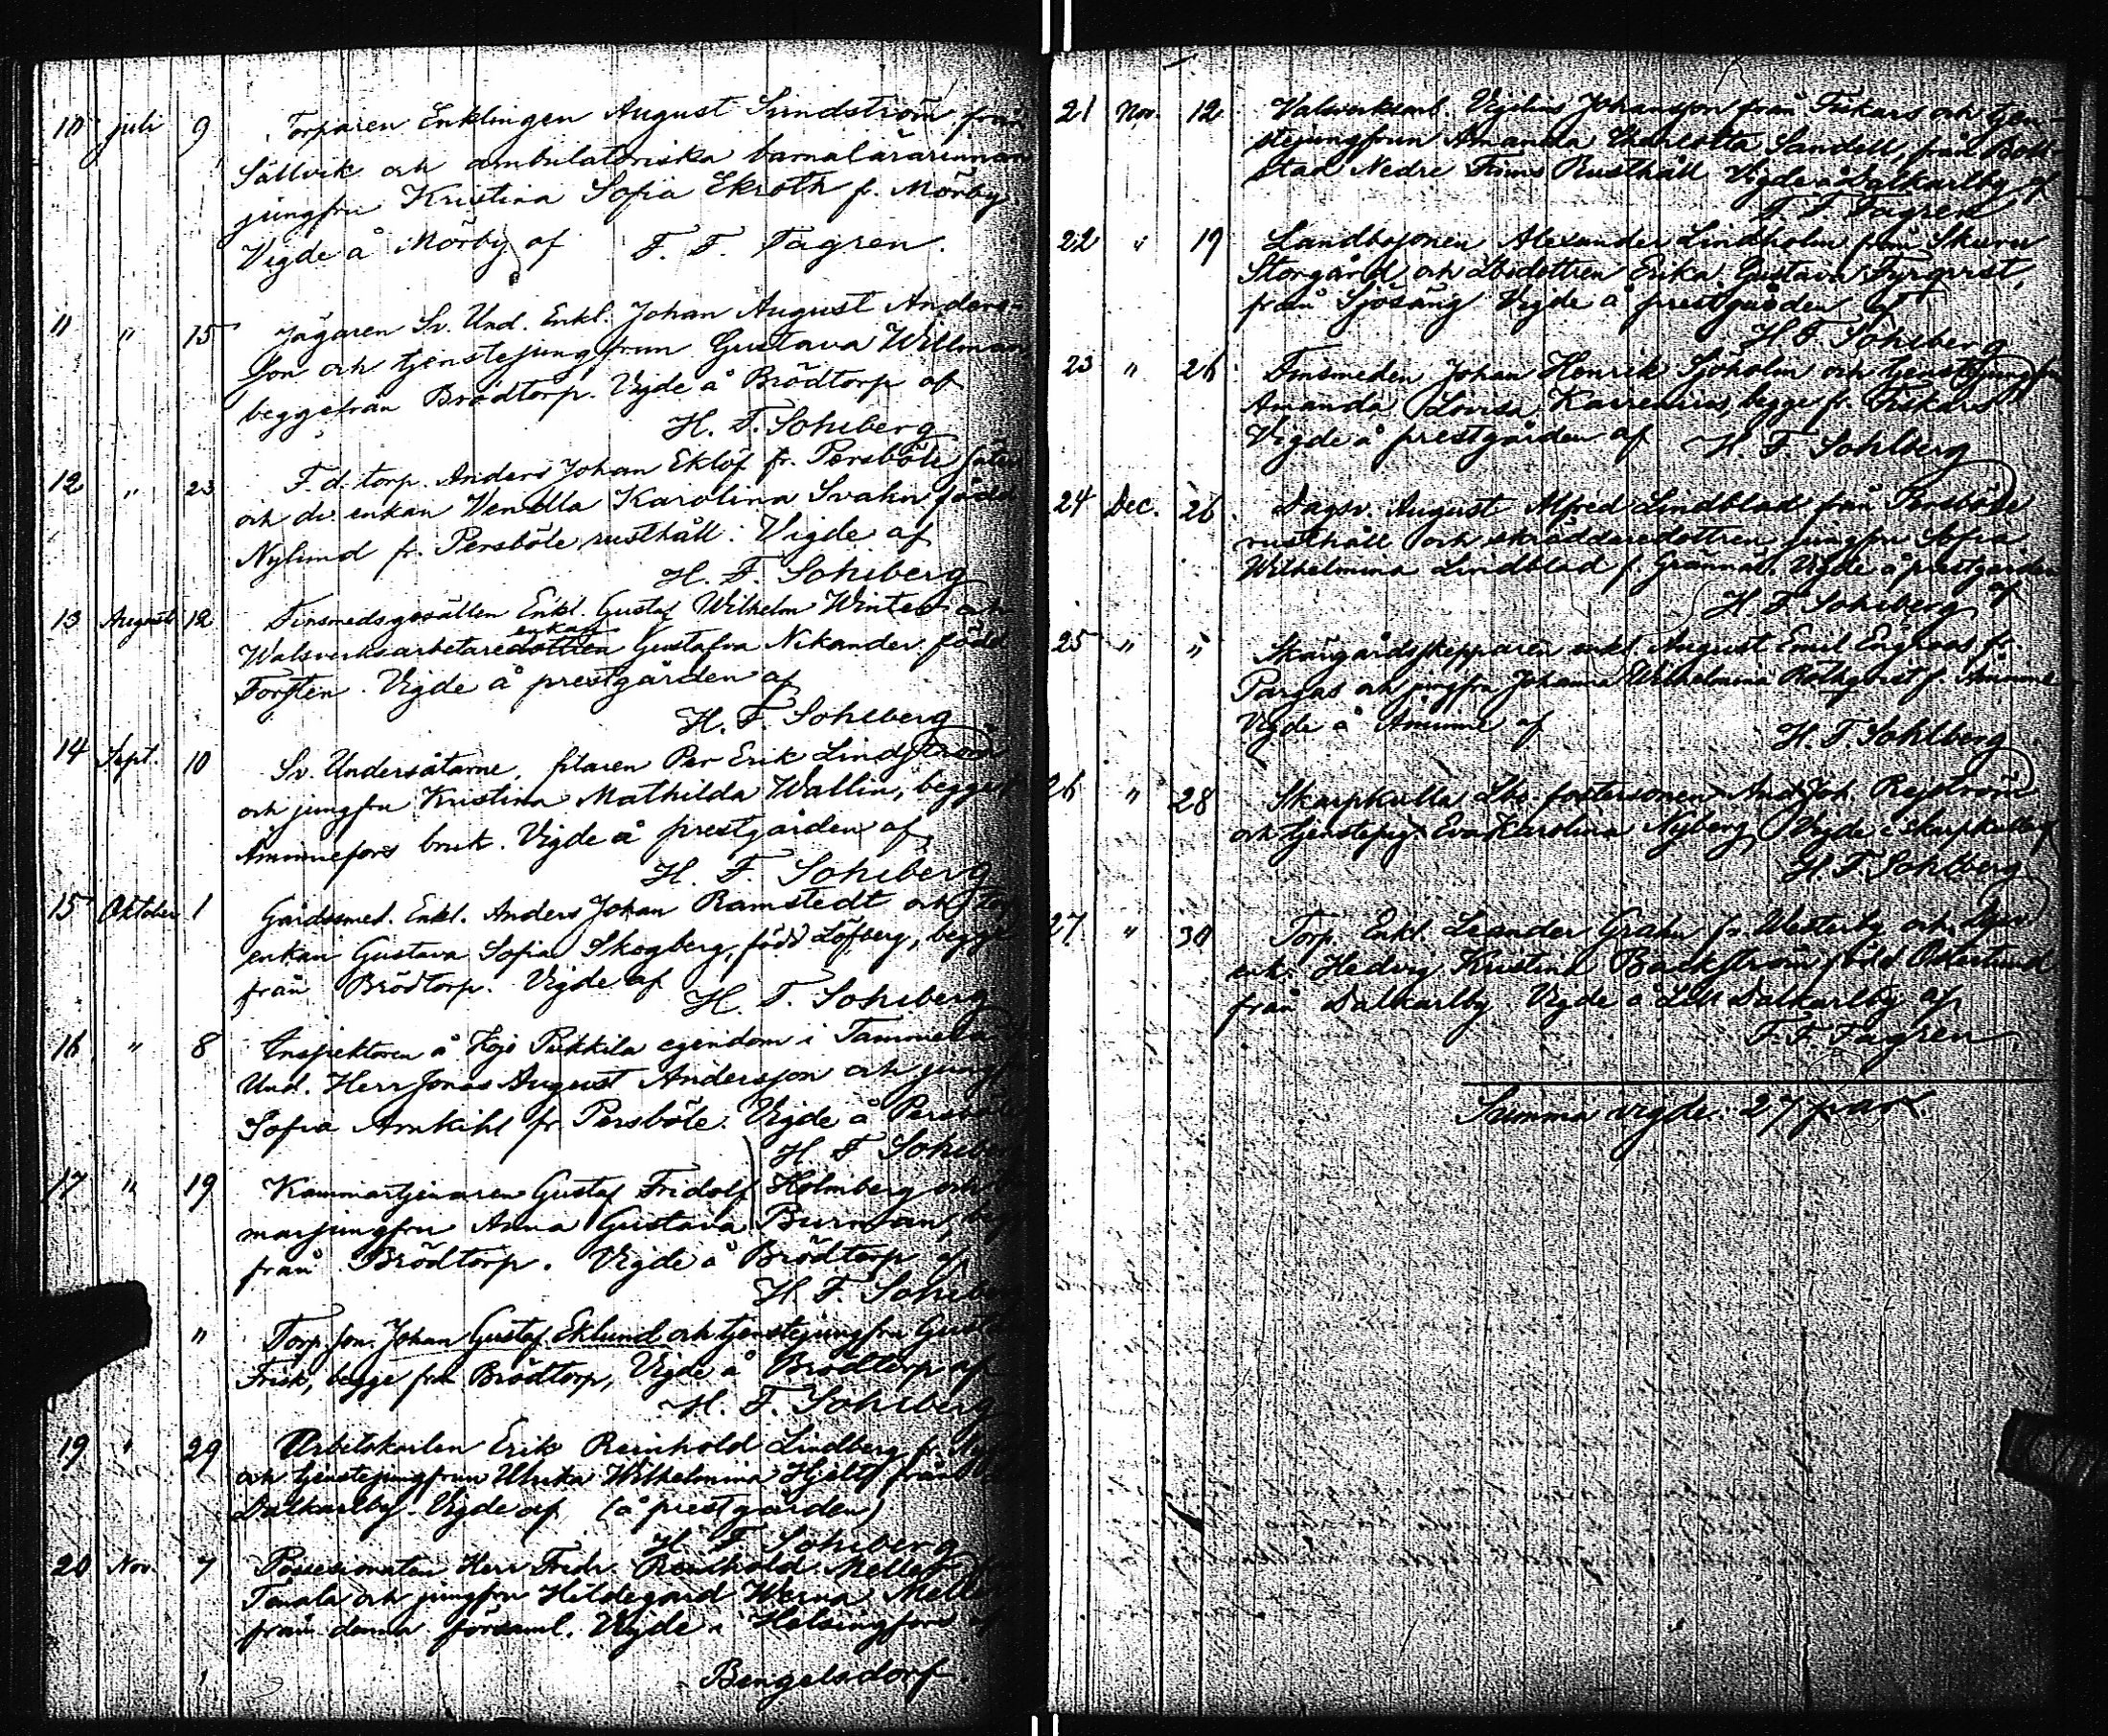 10 juli 9 Torparen Enklingen August Sundström från
Sällvik och ambulatoriska barnalärarinnan
jungfru Kristina Sofia Ekroth f. Mörby
Vigde å Mörby af F. F. Fagren.
11 " 15 Jägaren Sv. Und. Enkl. Johan August Anders-
son och tjenstejungfrun Gustava Willman
begge från Brödtorp. Vigde å Brödtorp af
H. F. Sohlberg
12 " 23 F. d. torp. Anders Johan Eklöf fr. Persböle
och de. enkan Vendla Karolina Svahn född
Nylund fr. Persböle rusthåll. Vigde af
H. F. Sohlberg
13 Augusti 12 Finsmedsgesällen Enkl. Gustaf Wilhelm Winter och
enkan
Walsverksarbetaredottren Gustafva Nikander född
Forsten. Vigde å prestgården af
H. F. Sohlberg
14 Sept. 10 Sv. Undersåtarne, filaren Per Erik Lindström
och jungfru Kristina Mathilda Wallin, begge f
Åminnefors bruk. Vigde å prestgården af
H. F. Sohlberg
15 Oktober 1 Gårdssmed. Enkl. Anders Johan Ramstedt och
enkan Gustava Sofia Skogberg, född Löfberg, begge
från Brödtorp. Vigde af
H. F. Sohlberg
16 " 8 Inspektoren å egendom i Tammela
Und. Herr Jonas August Andersson och jungf
Sofia fr Persböle. Vigde å Persböle
H. F. Sohlberg
17 " 19 Kammartjenaren Gustaf Fridolf Holmberg och
marjungfru Anna Gustava Burman,
från Brödtorp. Vigde å Brödtorp af
H. F. Sohlberg
" Torp. son. Johan Gustaf Eklund och tjenstejungfru
Frisk, begge från Brödtorp, Vigde å Brödtorp af
H. F. Sohlberg
19 " 29 Arbetskarlen Erik Reinhold Lindberg fr.
och tjenstejungfrun Ulrika Wilhelmina Hjelt från
Dalkarlby. Vigde af (å prestgården)
H. F. Sohlberg
20 Nov. 7 Possessionaten Herr Fredr. Reinhold
Tenala och jungfru Hildegard Werna
från denna församl. Vigde i Helsingfors af
Bengelsdorf.
21 Nov. 12 Valsverksarb. Johansson från Fiskars och tjen-
stejungfrun Amanda Charlotta Sandell, från
stad Nedre Rusthåll Vigde å Dalkarlby af
F. F. Fagren
22 " 19 Landbosonen Alexander Lindholm från Skuru
Storgård och Lbodottren Erika Gustava Fyrqvist,
från Sjösäng Vigde å prestgården af
H. F. Sohlberg
23 " 26 Finsmeden Johan Henrik Sjöholm och tjenstejungfru
Amanda Lovisa begge fr. Fiskars
Vigde å prestgården af H. F. Sohlberg
24 Dec. 26 Dagsv. August Alfred Lindblad från Persböle
rusthåll och skräddaredottren jungfru Sofia
Wilhelmina Lindblad f. Vigde å prestgården
af
H. F. Sohlberg
25 " " Skärgårdsskepparen enkl August Emil Engroos fr.
Pargas och jungfru Johanna Wilhelmina Rothqvist f. Åminne
Vigde å Åminne af
H. F. Sohlberg
26 " 28 Skarpkulla Lbo. fostersonen And. Joh. Rejström
och tjenstepig. Eva Karolina Nyberg Vigde å Skarpkulla af
H. F. Sohlberg
27 " 30 Torp. Enkl. Leander Grahn fr. Westerby och
enk. Hedvig Kristina Backström född Österlund
från Dalkarlby. Vigde å Lill Dalkarlby af
F. F. Fagren
Summa vigde: 27 par.